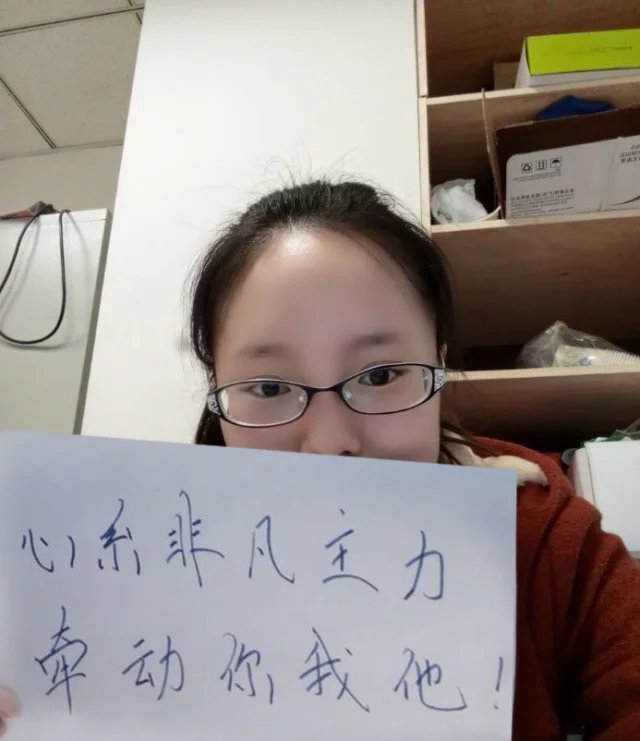 心系非凡主力
牵动你我他！